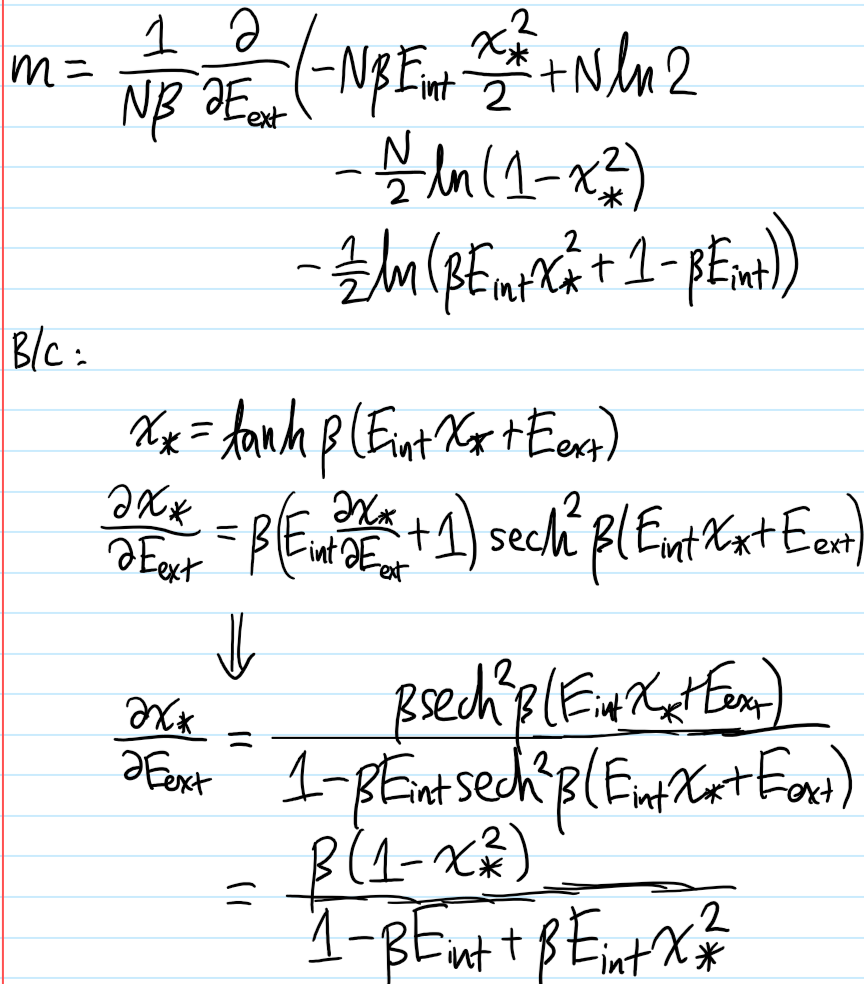 m = \frac{1}{Nβ} \frac{∂}{∂E_{ext}} (-NβE_{int} \frac{x_*^2}{2} + N ln 2
- \frac{N}{2} ln(1 - x_*^2)
- \frac{1}{2} ln(βE_{int}x_*^2 + 1 - βE_{int}))
B/c:
x_* = tanh β(E_{int}x_* + E_{ext})
\frac{∂x_*}{∂E_{ext}} = β(E_{int} \frac{∂x_*}{∂E_{ext}} + 1) sech^2 β(E_{int}x_* + E_{ext})
⇓
\frac{∂x_*}{∂E_{ext}} = \frac{β sech^2 β(E_{int}x_* + E_{ext})}{1 - βE_{int} sech^2 β(E_{int}x_* + E_{ext})}
= \frac{β(1 - x_*^2)}{1 - βE_{int} + βE_{int}x_*^2}